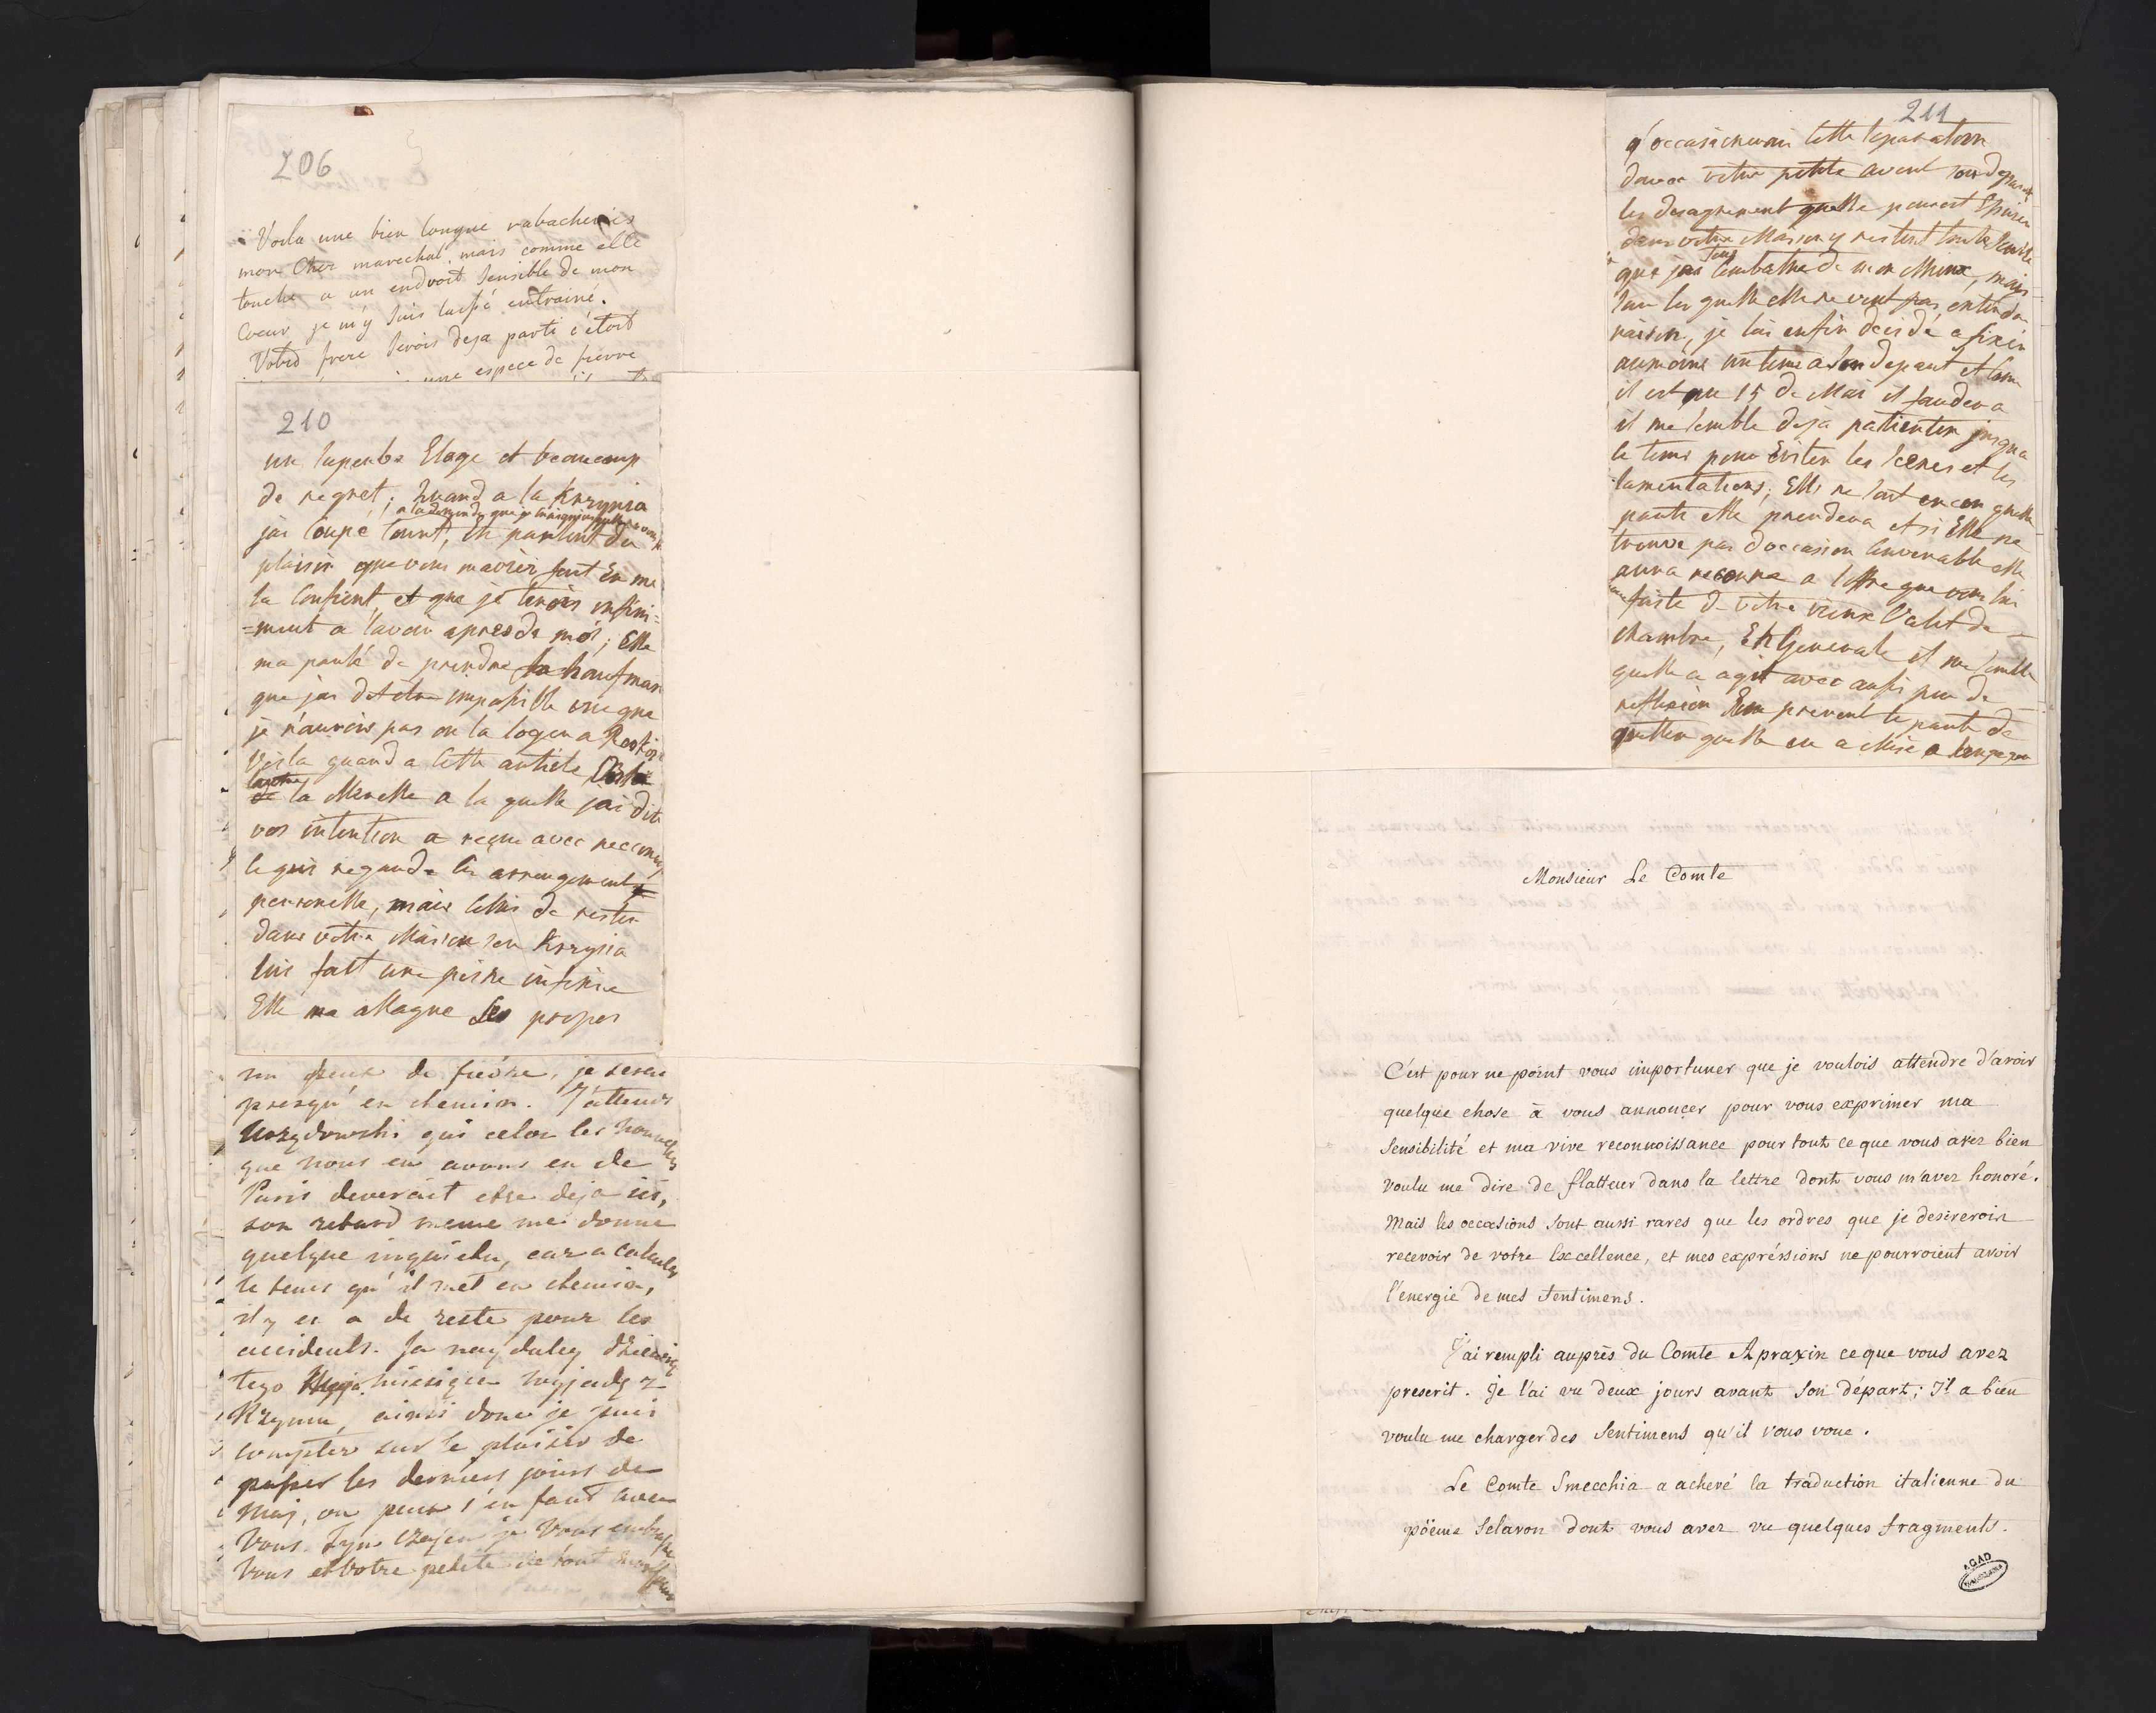 206
Voila une bien longue rabacheries
mon Cher marechal, mais comme elle
touche a un endroit sensible de mon
Coeur, je m'y suis laissé entrainé.
Votre frere serois deja parti c'étoit
une espece de fievre
210
un superbe Eloge et beaucoup
de regret; quand a la Krzysia
jai coupé court, en parlent du
plaisir que vous mavier fait En me
la Confient, et que je tenois infini=
=ment a lavoir apres de moi; Elle
ma parlé de prendre la haufman
que jai dit etre impossible vue que
je n'aurois pas ou la loger a
Voila quand a Cette article
la Merelle a la quelle jai dit
vos intention a reçue avec
ce qui regarde les arrengement
personelle, mais celui de rester
dans votre Maison sen Krzysia
lui fait une peine infinie
Elle ma allegue les propos
un peux de fievre, je serai
presqu' en chemin. J'attens
qui celon les nouvelles
que nous en avons eu de
Paris deverait etre deja ici,
son retard meme me donne
quelque inquietu, car a calculer
le tems qu' il met en chemin,
il y en a de reste pour les
accidents. Ja nay daley
tego miesiąca wyjadę z
ainsi donc je puis
compter sur le plaisir de
passer les derniers jours de
May, ou peux s'en faut avec
Vous. je Vous embrasse
Vous et votre petite de tout mon
211
q'occasionerai cette separation
votre petite avent son depart
les desagrement quelle pouvoit
dans votre Maison y restent toute
que jai combattue de mon Mieux, mais
sur les quelle elle ne veut pas entendre
raison, je lai enfin decidé a fixer
aumoins un tems a son depart et
il est au 15 de Mai il faudera
il me semble deja patienter jusqua
ce tems pour Eviter les scenes et les
lamentations; Elle ne sait encor quelle
partie elle prendera et si Elle ne
trouve pas d'occasion convenable elle
aura recours a l'offre que vous lui
faite de votre vieux Valet de
chambre, En General il me semble
quelle a agit avec aussi peu de
reflexion En prenent le parti de
quitter quelle en a Mise a
Monsieur Le Comte
C'est pour ne point vous importuner que je voulois attendre d'avoir
quelque chose à vous annoncer pour vous exprimer ma
sensibilité et ma vive reconnoissance pour tout ce que vous avez bien
voulu me dire de flatteur dans la lettre dont vous m'avez honoré.
Mais les occasions sont aussi rares que les ordres que je desirerois
recevoir de votre Excellence, et mes expréssions ne pourroient avoir
l'energie de mes sentimens.
J'ai rempli auprès du Comte Apraxin ce que vous avez
prescrit. Je l'ai vu deux jours avant son départ; Il a bien
voulu me charger des sentimens qu'il vous voue.
Le Comte Smecchia a achevé la traduction italienne du
pöeme Sclavon dont vous avez vu quelques fragments.
AGAD